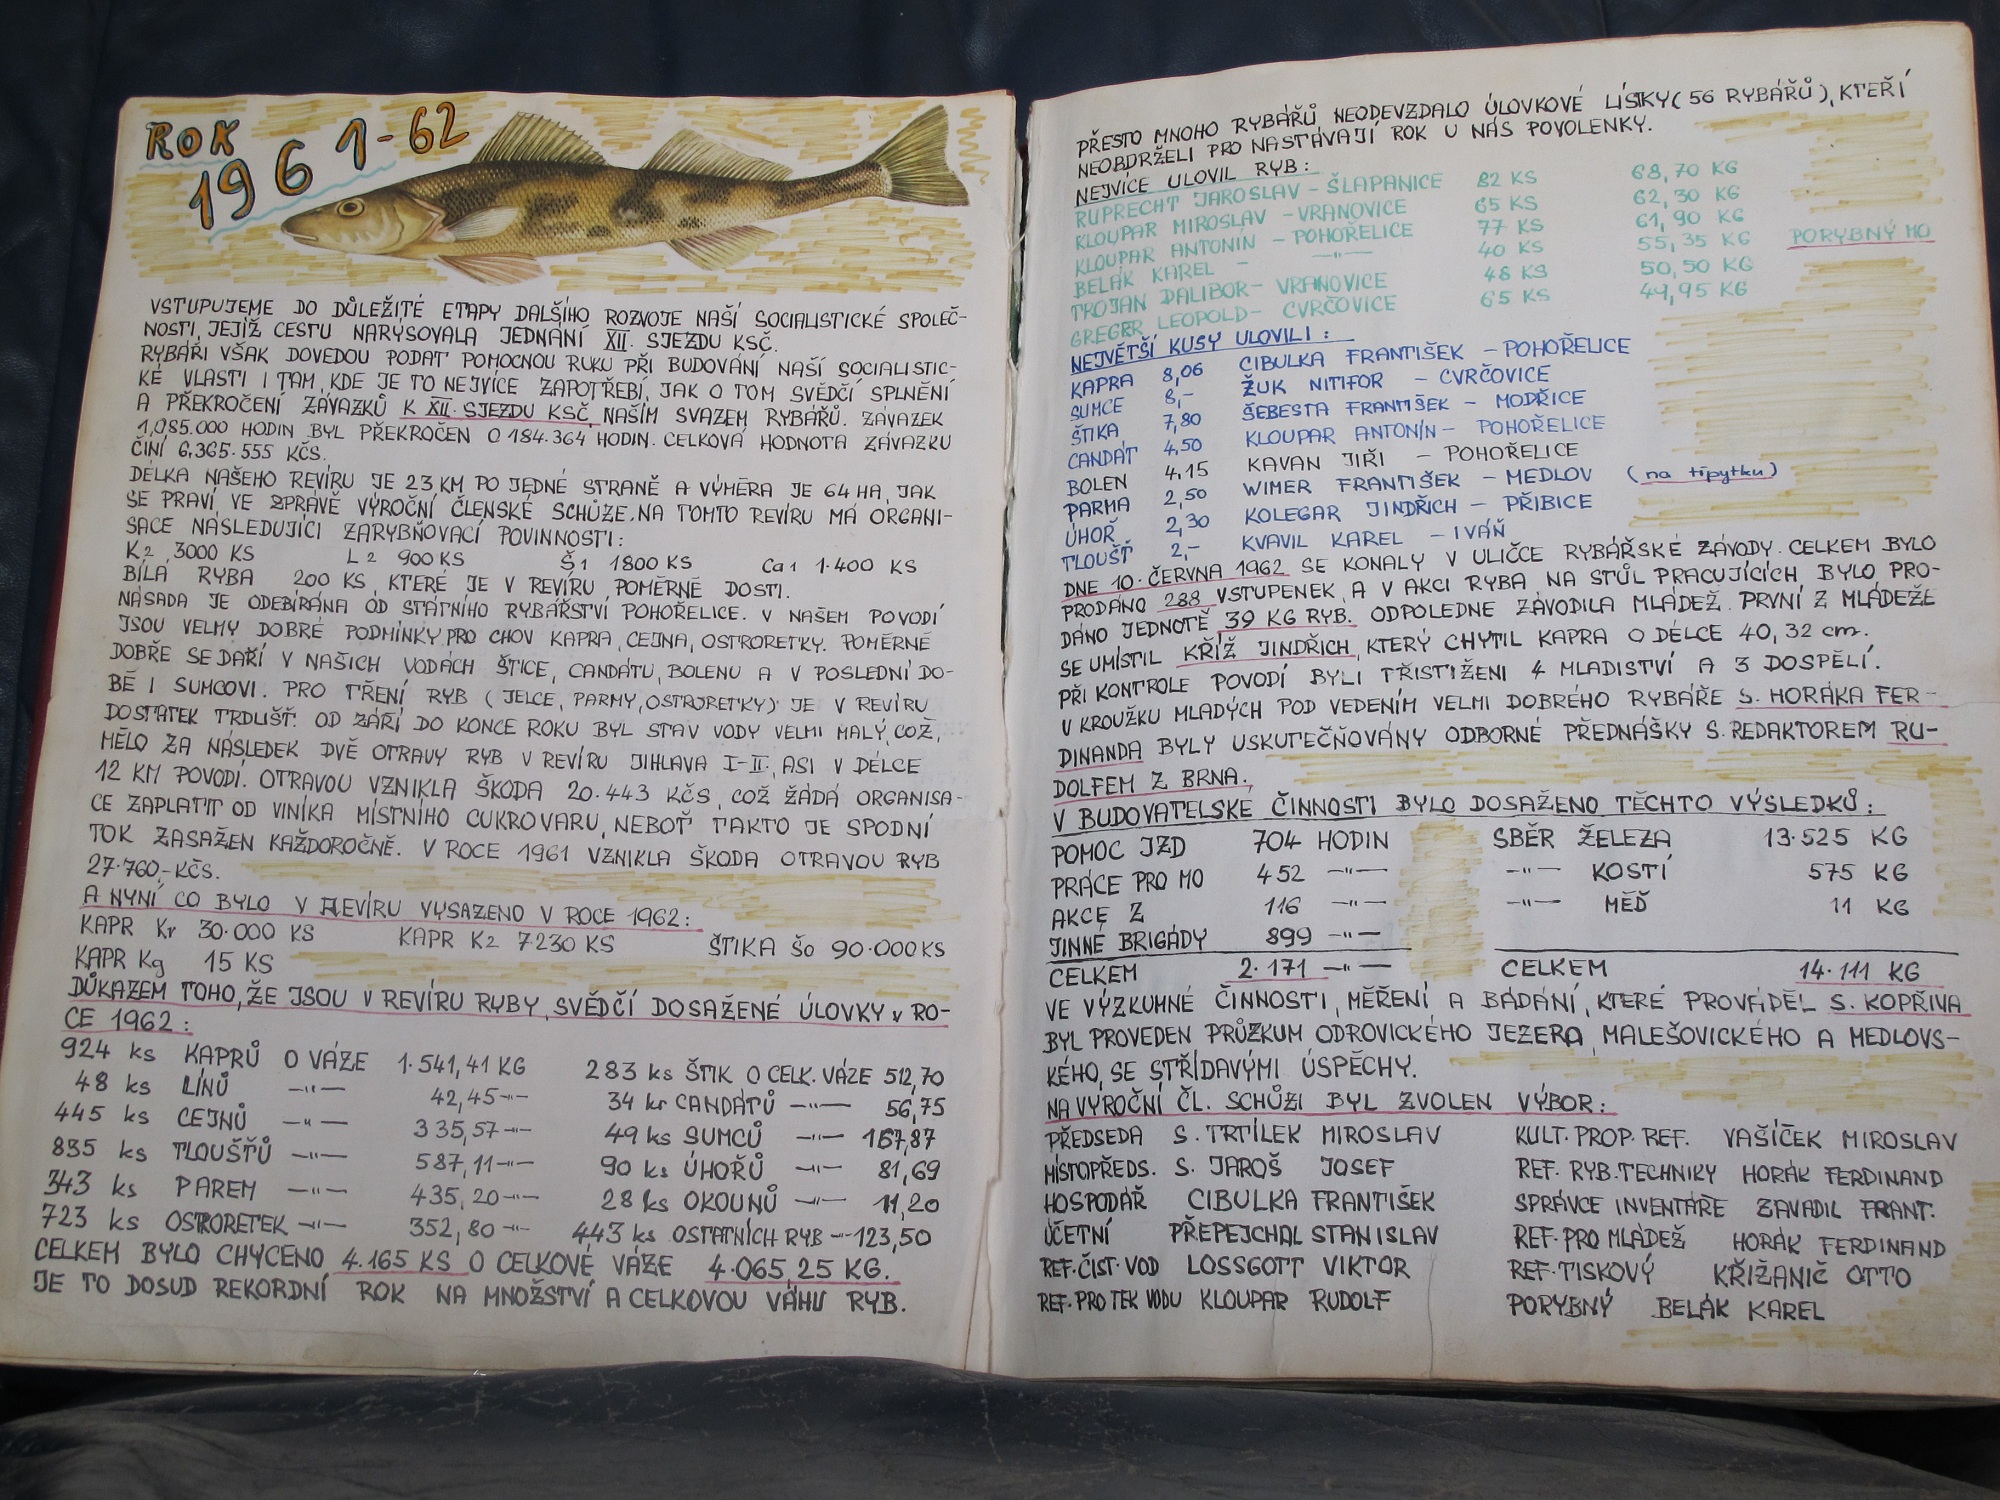 ROK
1961-62
VSTUPUJEME DO DŮLEŽITÉ ETAPY DALŠÍHO ROZVOJE NAŠÍ SOCIALISTICKÉ SPOLEČ-
NOSTI, JEJÍŽ CESTU NARÝSOVALA JEDNÁNÍ XII. SJEZDU KSČ.
RYBÁŘI VŠAK DOVEDOU PODAT POMOCNOU RUKU PŘI BUDOVÁNÍ NAŠÍ SOCIALISTIC-
KÉ VLASTI I TAM, KDE JE TO NEJVÍCE ZAPOTŘEBÍ, JAK O TOM SVĚDČÍ SPLNĚNÍ
A PŘEKROČENÍ ZÁVAZKŮ K XII. SJEZDU KSČ, NAŠÍM SVAZEM RYBÁŘŮ. ZÁVAZEK
1,085.000 HODIN BYL PŘEKROČEN O 184.364 HODIN. CELKOVÁ HODNOTA ZÁVAZKU
ČINÍ 6,365.555 KČS.
DÉLKA NAŠEHO REVÍRU JE 23 KM PO JEDNÉ STRANĚ A VÝMĚRA JE 64 HA, JAK
SE PRAVÍ VE ZPRÁVĚ VÝROČNÍ ČLENSKÉ SCHŮZE. NA TOMTO REVÍRU MÁ ORGANI-
SACE NÁSLEDUJÍCÍ ZARYBŇOVACÍ POVINNOSTI:
K2 3000 KS L2 900 KS Š1 1800 KS Ca1 1.400 KS
BÍLÁ RYBA 200 KS, KTERÉ JE V REVÍRU POMĚRNĚ DOSTI.
NÁSADA JE ODEBÍRÁNA OD STÁTNÍHO RYBÁŘSTVÍ POHOŘELICE. V NAŠEM POVODÍ
JSOU VELMY DOBRÉ PODMÍNKY PRO CHOV KAPRA, CEJNA, OSTRORETKY. POMĚRNĚ
DOBŘE SE DAŘÍ V NAŠICH VODÁCH ŠTICE, CANDÁTU, BOLENU A V POSLEDNÍ DO-
BĚ I SUMCOVI. PRO TŘENÍ RYB (JELCE, PARMY, OSTRORETKY) JE V REVÍRU
DOSTATEK TRDLIŠŤ. OD ZÁŘÍ DO KONCE ROKU BYL STAV VODY VELMI MALÝ, COŽ,
MĚLO ZA NÁSLEDEK DVĚ OTRAVY RYB V REVÍRU JIHLAVA I-II, ASI V DÉLCE
12 KM POVODÍ. OTRAVOU VZNIKLA ŠKODA 20.443 KČS, COŽ ŽÁDÁ ORGANISA-
CE ZAPLATIT OD VINÍKA MÍSTNÍHO CUKROVARU, NEBOŤ TAKTO JE SPODNÍ
TOK ZASAŽEN KAŽDOROČNĚ. V ROCE 1961 VZNIKLA ŠKODA OTRAVOU RYB
27.760,-KČS.
A NYNÍ CO BYLO V REVÍRU VYSAZENO V ROCE 1962:
KAPR Kr 30.000 KS KAPR K2 7230 KS ŠTIKA Šo 90.000 KS
KAPR Kg 15 KS
DŮKAZEM TOHO, ŽE JSOU V REVÍRU RYBY, SVĚDČÍ DOSAŽENÉ ÚLOVKY V RO-
CE 1962:
924 ks KAPRŮ O VÁZE 1.541,41 KG 283 ks ŠTIK O CELK. VÁZE 512,70
48 ks LÍNŮ —"— 42,45 —"— 34 kr CANDÁTŮ —"— 56,75
445 ks CEJNŮ —"— 335,57 —"— 49 ks SUMCŮ —"— 167,87
835 ks TLOUŠŤŮ —"— 587,11 —"— 90 ks ÚHOŘŮ —"— 81,69
343 ks PAREM —"— 435,20 —"— 28 ks OKOUNŮ —"— 11,20
723 ks OSTRORETEK —"— 352,80 —"— 443 ks OSTATNÍCH RYB —"— 123,50
CELKEM BYLO CHYCENO 4.165 KS O CELKOVÉ VÁZE 4.065,25 KG.
JE TO DOSUD REKORDNÍ ROK NA MNOŽSTVÍ A CELKOVOU VÁHU RYB.
PŘESTO MNOHO RYBÁŘŮ NEODEVZDALO ÚLOVKOVÉ LÍSTKY (56 RYBÁŘŮ), KTEŘÍ
NEOBDRŽELI PRO NASTÁVAJÍ ROK U NÁS POVOLENKY.
NEJVÍCE ULOVIL RYB:
RUPRECHT JAROSLAV - ŠLAPANICE 82 KS 68,70 KG
KLOUPAR MIROSLAV - VRANOVICE 65 KS 62,30 KG
KLOUPAR ANTONÍN - POHOŘELICE 77 KS 61,90 KG
BELÁK KAREL - —"— 40 KS 55,35 KG PORYBNÝ MO
TROJAN DALIBOR - VRANOVICE 48 KS 50,50 KG
GREGER LEOPOLD - CVRČOVICE 65 KS 49,95 KG
NEJVĚTŠÍ KUSY ULOVILI:
KAPRA 8,06 CIBULKA FRANTIŠEK - POHOŘELICE
SUMCE 8,- ŽUK NITIFOR - CVRČOVICE
ŠTIKA 7,80 ŠEBESTA FRANTIŠEK - MODŘICE
CANDÁT 4,50 KLOUPAR ANTONÍN - POHOŘELICE
BOLEN 4,15 KAVAN JIŘI - POHOŘELICE
PARMA 2,50 WIMER FRANTIŠEK - MEDLOV (na třpytku)
ÚHOŘ 2,30 KOLEGAR JINDŘICH - PŘIBICE
TLOUŠŤ 2,- KVAVIL KAREL - IVÁŇ
DNE 10. ČERVNA 1962 SE KONALY V ULIČCE RYBÁŘSKÉ ZÁVODY. CELKEM BYLO
PRODÁNO 288 VSTUPENEK A V AKCI RYBA NA STŮL PRACUJÍCÍCH, BYLO PRO-
DÁNO JEDNOTĚ 39 KG RYB. ODPOLEDNE ZÁVODILA MLÁDEŽ. PRVNÍ Z MLÁDEŽE
SE UMÍSTIL KŘÍŽ JINDŘICH, KTERÝ CHYTIL KAPRA O DÉLCE 40,32 cm.
PŘI KONTROLE POVODÍ BYLI TŘISTIŽENI 4 MLADISTVÍ A 3 DOSPĚLÍ.
V KROUŽKU MLADÝCH POD VEDENÍM VELMI DOBRÉHO RYBÁŘE S. HORÁKA FER-
DINANDA BYLY USKUTEČŇOVÁNY ODBORNÉ PŘEDNÁŠKY S. REDAKTOREM RU-
DOLFEM Z BRNA.
V BUDOVATELSKE ČINNOSTI BYLO DOSAŽENO TĚCHTO VÝSLEDKŮ:
POMOC JZD 704 HODIN SBĚR ŽELEZA 13.525 KG
PRÁCE PRO MO 452 —"— —"— KOSTÍ 575 KG
AKCE Z 116 —"— —"— MĚĎ 11 KG
JINNÉ BRIGÁDY 899 —"—
CELKEM 2.171 —"— CELKEM 14.111 KG
VE VÝZKUMNÉ ČINNOSTI, MĚŘENÍ A BÁDÁNÍ, KTERÉ PROVÁDĚL S. KOPŘIVA
BYL PROVEDEN PRŮZKUM ODROVICKÉHO JEZERA, MALEŠOVICKÉHO A MEDLOVS-
KÉHO, SE STŘÍDAVÝMI ÚSPĚCHY.
NA VÝROČNÍ ČL. SCHŮZI BYL ZVOLEN VÝBOR:
PŘEDSEDA S. TRTÍLEK MIROSLAV KULT. PROP. REF. VAŠÍČEK MIROSLAV
MÍSTOPŘEDS. S. JAROŠ JOSEF REF. RYB. TECHNIKY HORÁK FERDINAND
HOSPODÁŘ CIBULKA FRANTIŠEK SPRÁVCE INVENTÁŘE ZAVADIL FRANT.
ÚČETNÍ PŘEPEJCHAL STANISLAV REF. PRO MLÁDEŽ HORÁK FERDINAND
REF. ČIST. VOD LOSSGOTT VIKTOR REF. TISKOVÝ KŘIŽANIČ OTTO
REF. PRO TEK. VODU KLOUPAR RUDOLF PORYBNÝ BELÁK KAREL